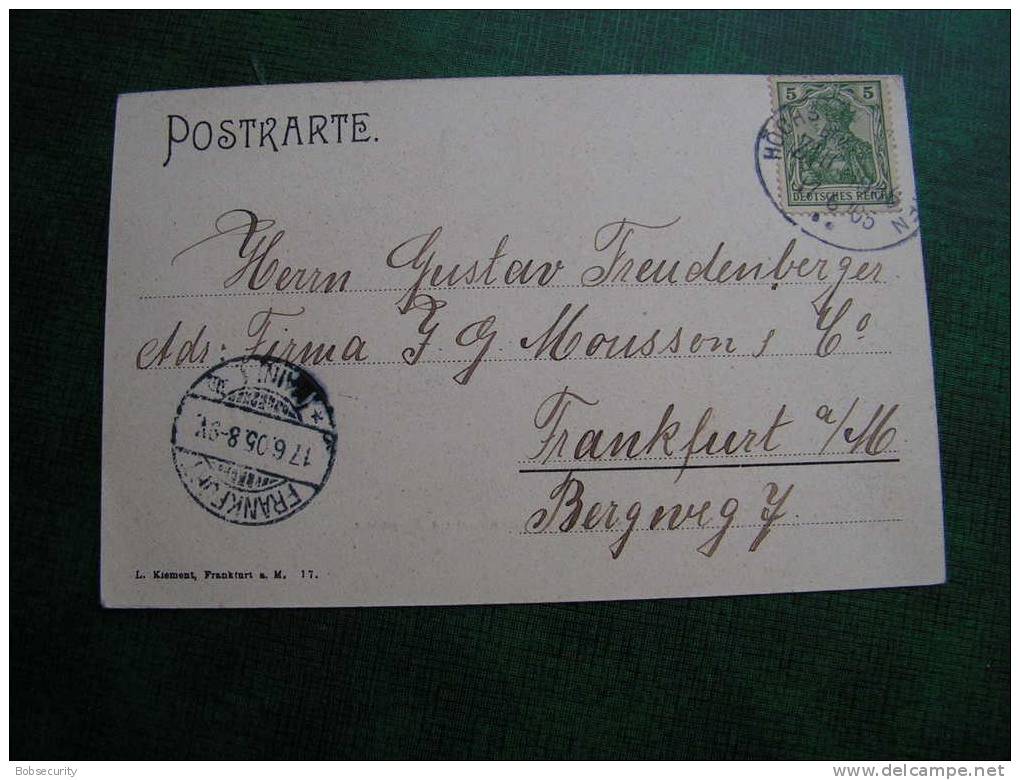 POSTKARTE.
5 5
DEUTSCHES REICH
Herrn Gustav Freudenberger
Adr. Firma J. G. Mousson & Co
Frankfurt a/M.
Bergweg 7.
17.6.05.8-9V.
FRANKFURT
L. Klement, Frankfurt a. M. 17.
Bobsecurity
www.delcampe.net